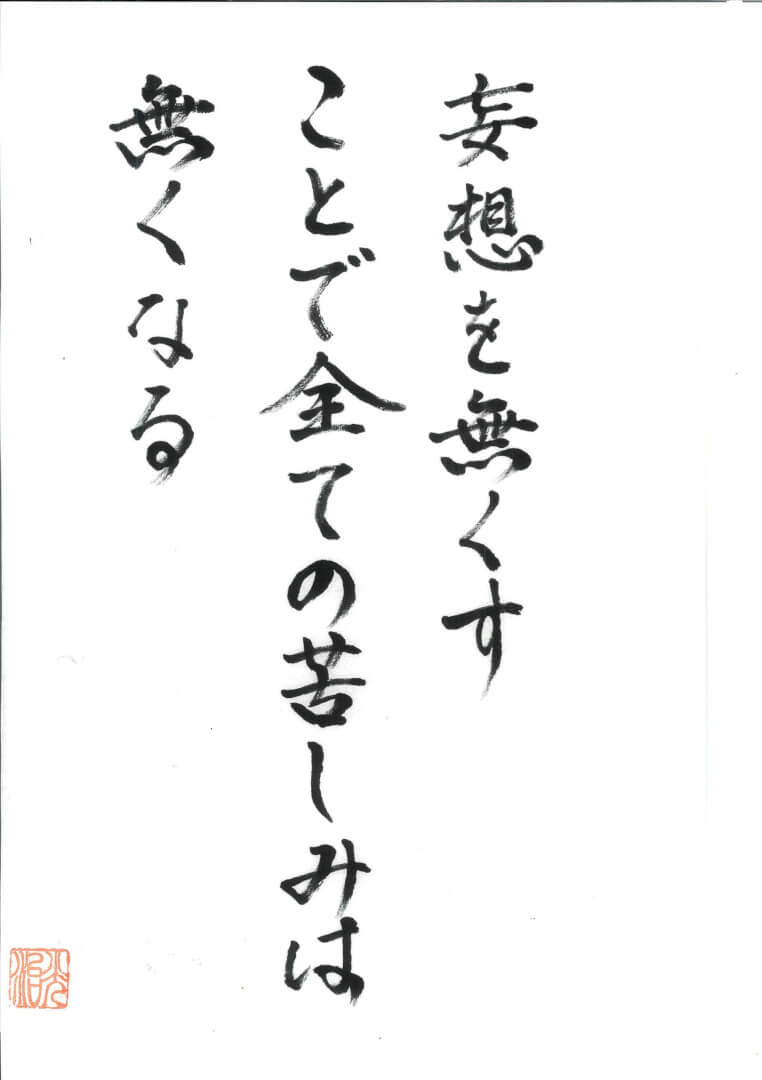 妄想を無くす
ことで全ての苦しみは
無くなる